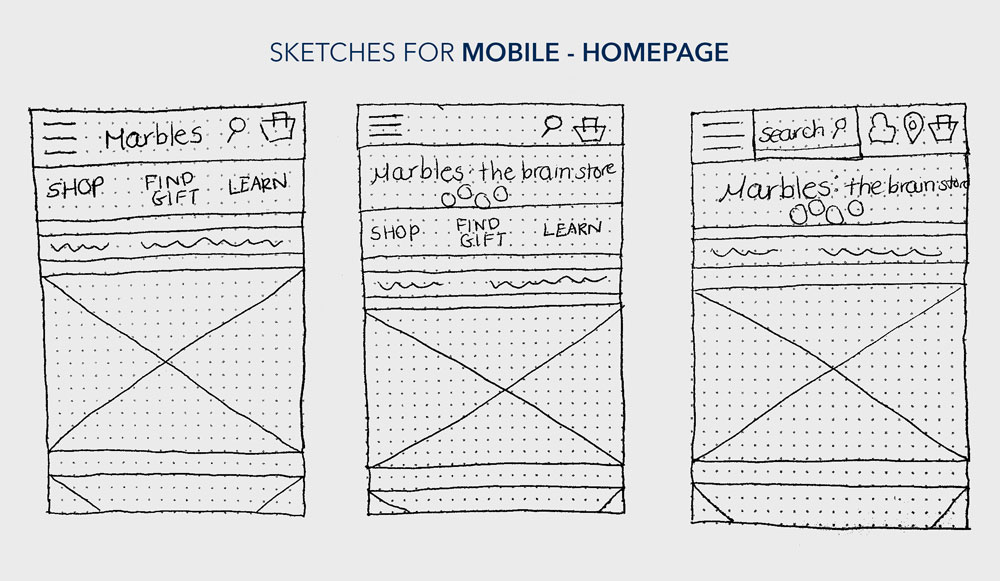 SKETCHES FOR MOBILE - HOMEPAGE
Marbles
SHOP
FIND
GIFT
LEARN
Marbles: the brain store
SHOP
FIND
GIFT
LEARN
search
Marbles: the brain store